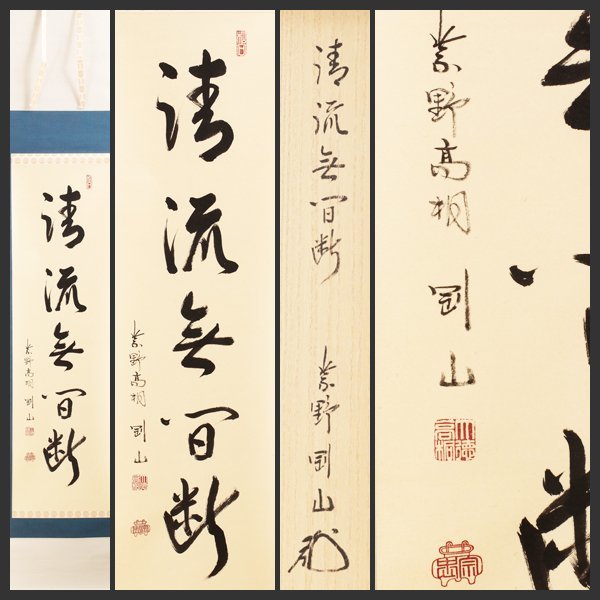 清流無間断
紫野高桐 剛山
清流無間断
紫野高桐 剛山
清流無間断
紫野剛山
紫野高桐 剛山